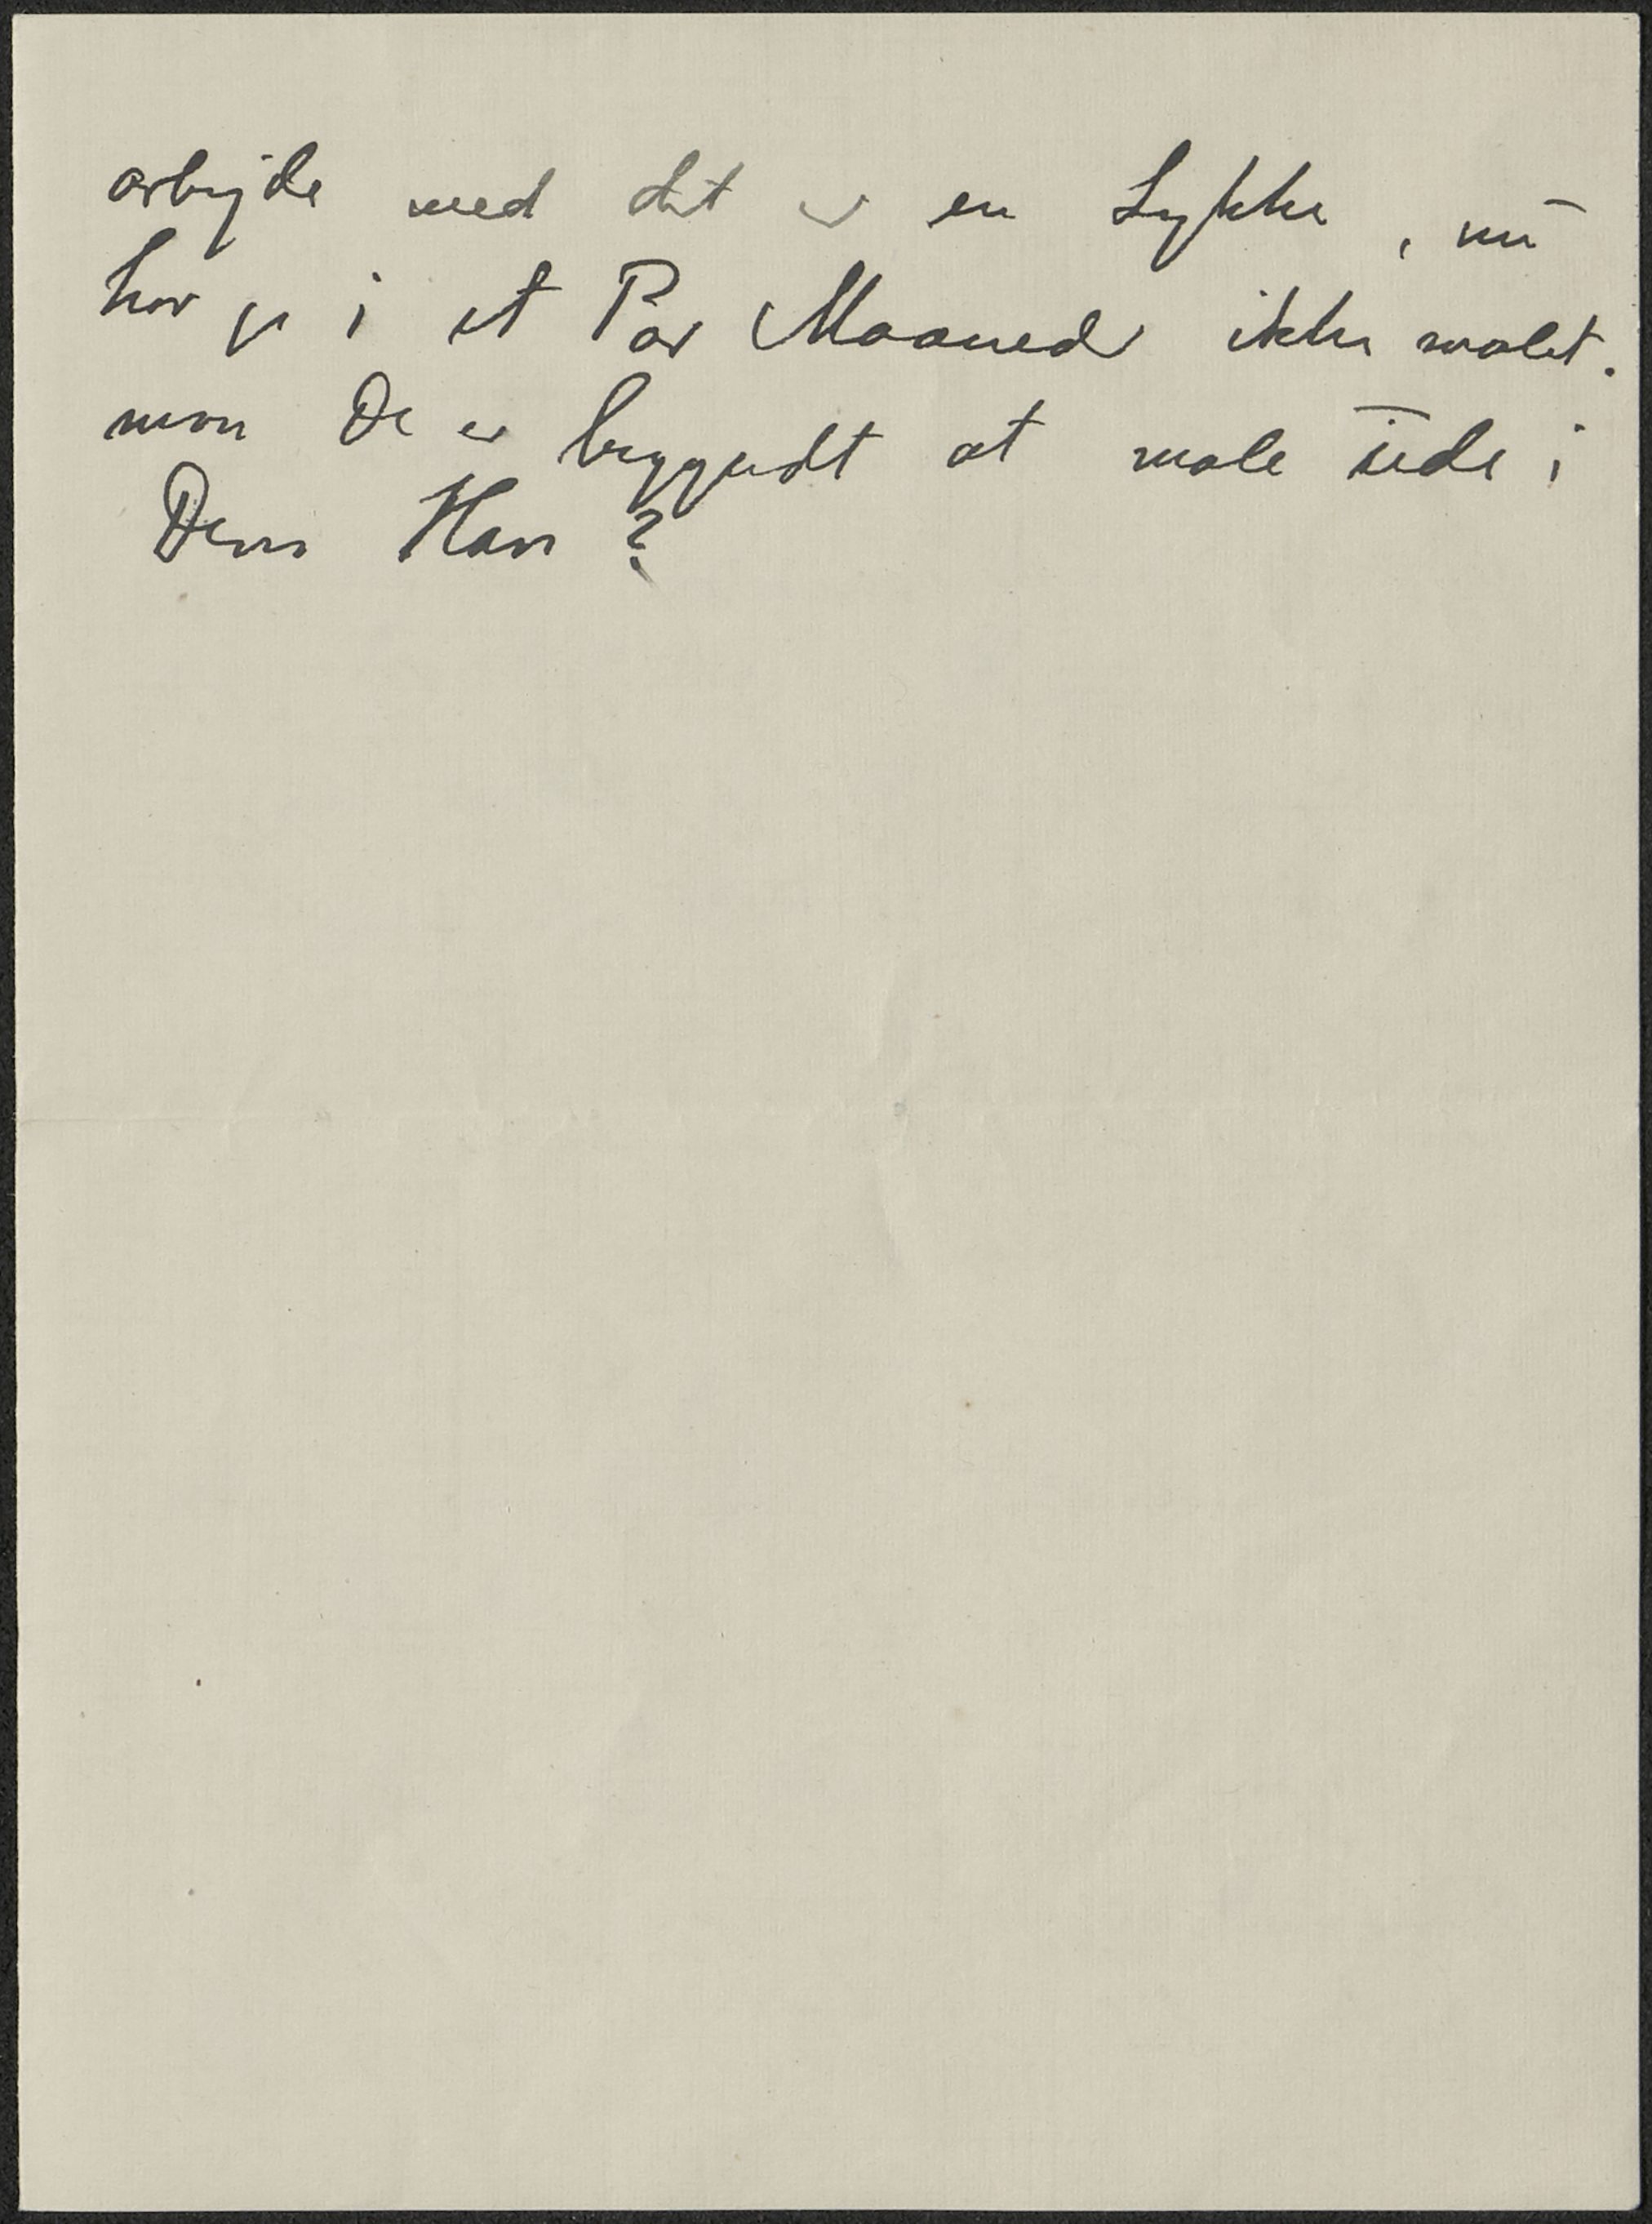 arbejde med det er en Lykke, nu
har je i et Par Maaneder ikke malet.
mon De er begyndt at male ude i
Deres Have?